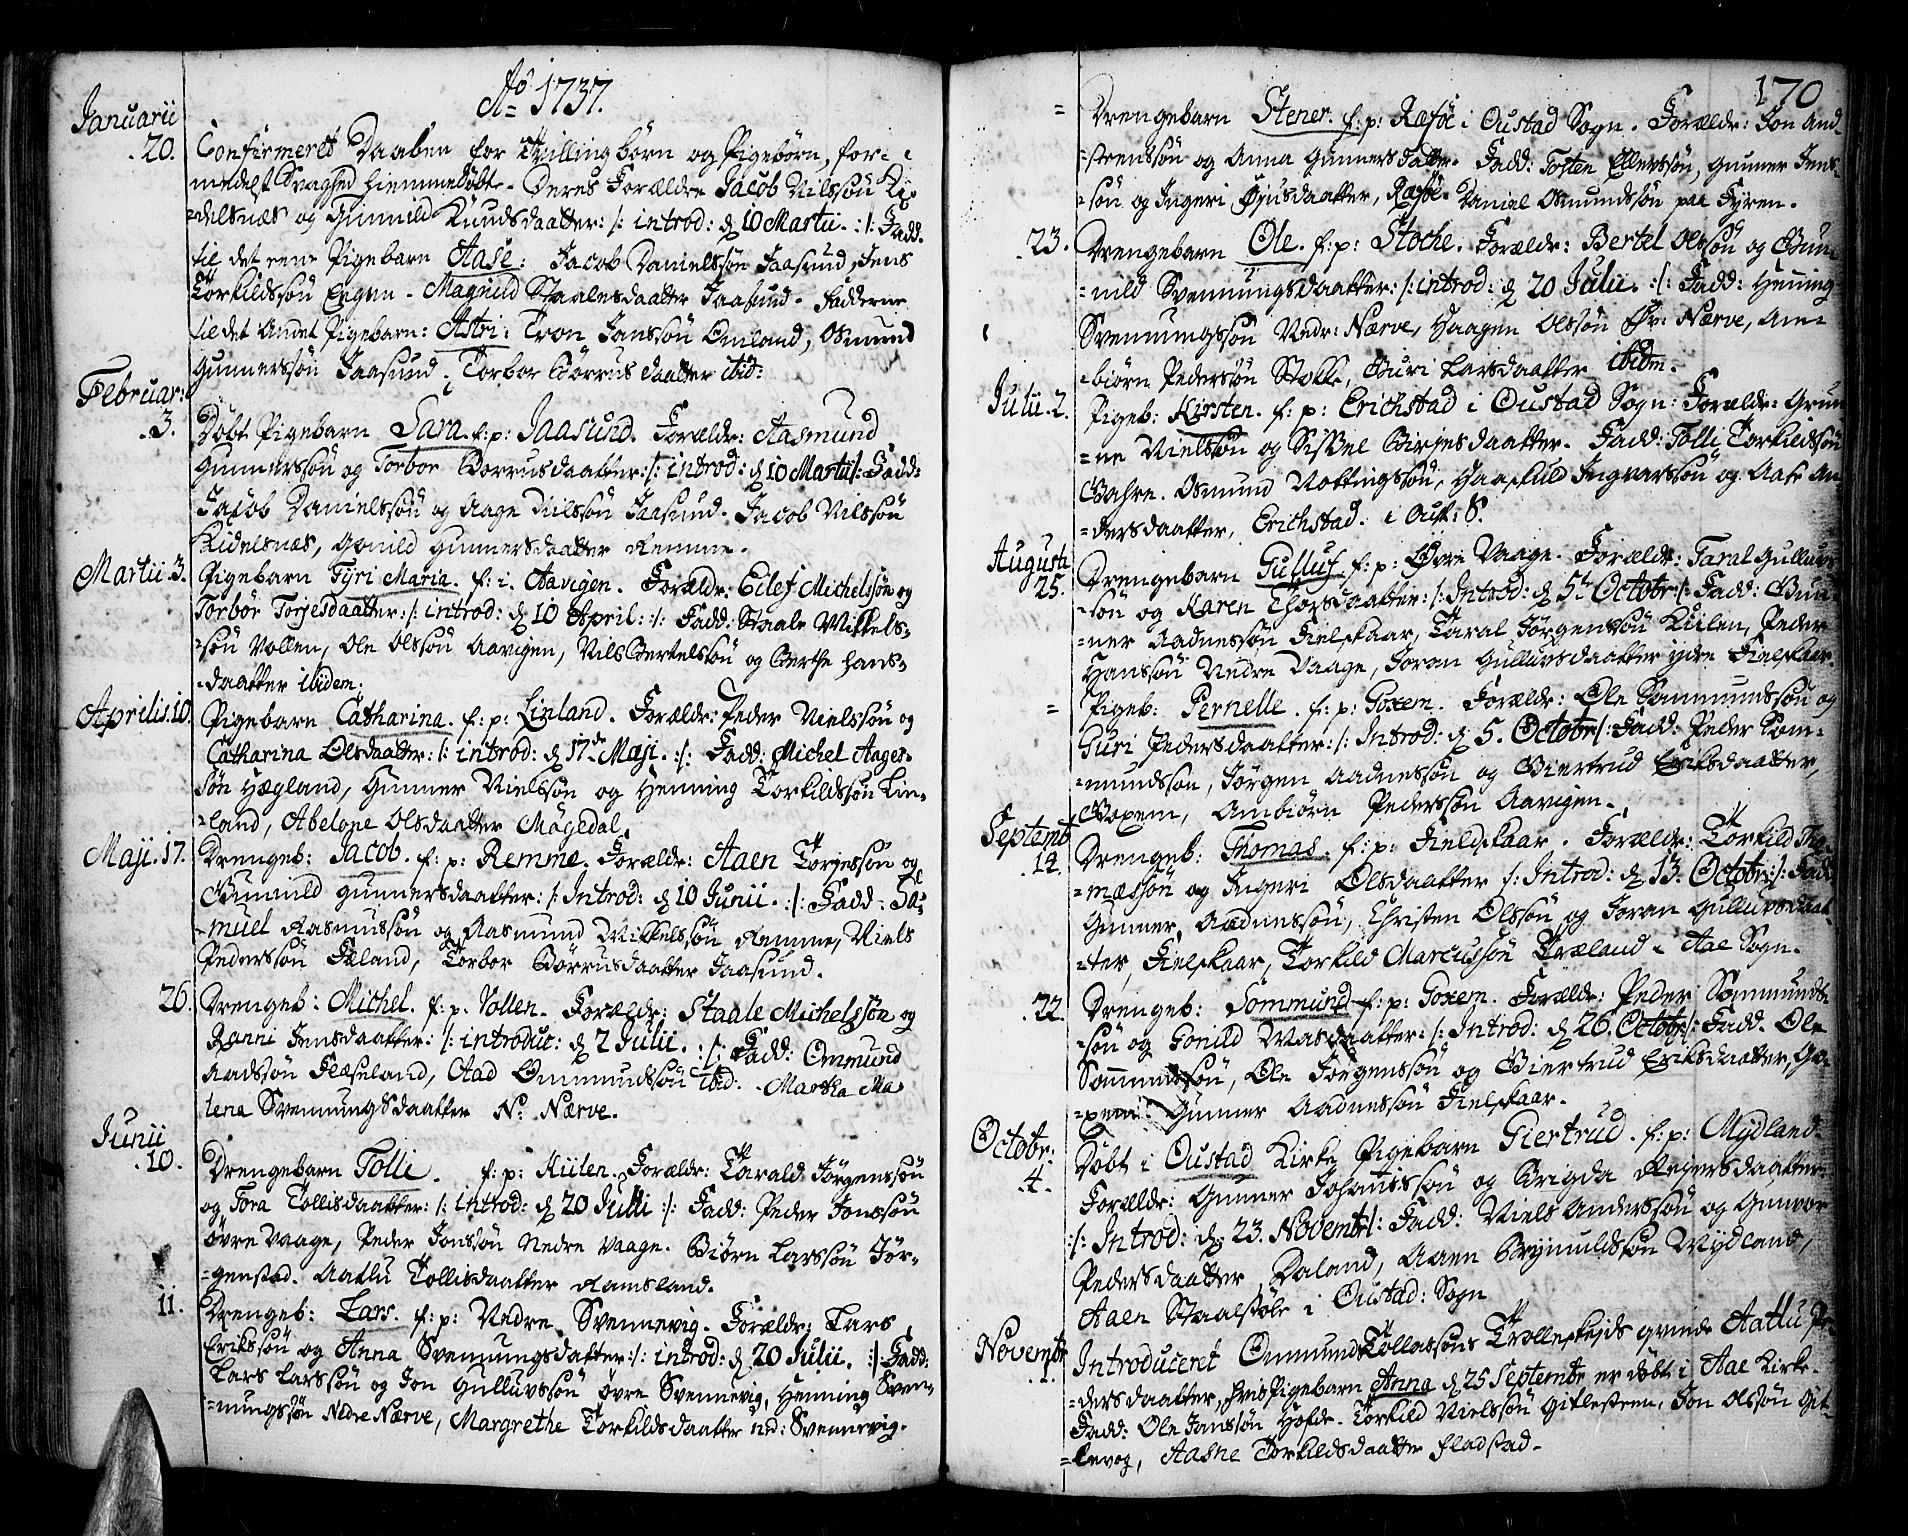 Aō 1737.
Januarii
20. Confirmeret Daaben for Tvilling børn og Pigebørn, for-
medelst Svaghed hiemmedøbt. Deres Forældre Jacob Nilssøn Ki-
-delsnæs og Gunnild Knudsdaatter :/: introd: d 10 Martii. :/: Fadd.
til det eene Pigebarn Aase: Jacob Danielssøn Jaasund, Jens
Torkildssøn Eegen. Magnild Staalesdaatter Jaasund. Fadderne
til det Andet Pigebarn: Astri: Tron Janssøn Omland, Osmund
Gunnerssøn Jaasund. Torbor Børrusdaatter ibid:
Februar:
3. Døbt Pigebarn Sara. f: p: Jaasund. Forældr: Aasmund
Gunnerssøn og Torbor Børrusdaatter :/: introd: d 10 Martii :/: Fadd:
Jacob Danielssøn og Aage Nilssøn Jaasund. Jacob Nilssøn
Kidelsnæs, Gonild Gunnersdaatter Remme.
Martii. 3. Pigebarn Tyri Maria. f: i. Aavigen. Forældr: Eilef Michelssøn og
Torbør Torjesdaatter :/: introd: d 10 April: :/: Fadd: Staale Mikkels-
-søn Vollen, Ole Olssøn Aavigen, Nils Bertelssøn og Berthe Hans-
-daatter ibidem.
Aprilis. 10. Pigebarn Catharina. f: p: Linland. Forældr: Peder Nielssøn og
Catharina Olsdaatter :/: introd: d 17de Maji. :/: Fadd: Michel Aages-
søn Hægland, Gunner Nielssøn og Henning Torkildssøn Lin-
-land, Abelone Olsdaatter Møgedal.
Maji. 17. Drengeb: Jacob. f: p: Remme. Forældr: Aaen Torgessøn og
Gunnild Gunnersdaatter :/: Introd: d 10 Junii. :/: Fadd: Sa-
-muel Rasmussøn og Rasmund Mikkelssøn Remme, Niels
Pederssøn Fæland, Torbor Børrusdaatter Jaasund.
26. Drengeb: Michel. f: p: Vollen. Forældr: Staale Michelssøn og
Ranni Jensdaatter :/: introduc: d 2 Julii. :/: Fadd: Ommund
Aadssøn Flæseland, Aad Ommundssøn ibid: Martha Ma-
lena Svennungsdaatter N: Nærve.
Junii
10. Drengebarn Tolli. f: p: Kiilen. Forældr: Tarald Jørgenssøn
og Tora Tollisdaatter :/: introd: d 20 Julii :/: Fadd: Peder Jonssøn
øvre Vaage, Peder Jonssøn Nedre Vaage. Biørn Larssøn Jør-
-genstad. Aatlu Tollisdaatter Ramsland.
11. Drengeb: Lars. f: p: Nedre Svennevig. Forældr: Lars
Erikssøn og Anna Svennungsdatter :/: introd: d 20 Julii. :/: Fadd:
Lars Larssøn og Jon Gulluvssøn øvre Svennevig, Henning Sven-
-nungssøn Nedre Nærve, Margrethe Torkildsdaatter ned: Svennevig.
170
= Drengebarn Stener. f: p: Ræføe i Oustad Sogn. Forældr: Jon And-
-strendsøn og Anna Gunnersdatter. Fadd: Tosten Ellerssøn, Gunner Jens-
-søn og Ingeri Øjusdaatter, Ræføe. Daniel Osmundssøn paa Fyren.
23. Drengebarn Ole. f: p: Stoche. Forældr: Bertel Olssøn og Gun-
-nild Svennungsdaatter :/: introd: d 20 Julii. :/: Fadd: Henning
Svennungssøn Nedr: Nærve, Haagen Olssøn Øv: Nærve, Am-
-biørn Pederssøn Stokke, Guri Larsdaatter ibidm.
Julii. 2. Pigeb: Kirsten. f: p: Erichstad i Oustad Sogn: Forældr: Grun-
-ne Nielssøn og Sissel Birjesdaatter. Fadd: Tolli Torkildssøn
Bahre. Osmund Nottingssøn, Haaskuld Ingvarssøn og Aase An-
-dersdaatter, Erichstad. i Oust: S.
Augusta
25. Drengebarn Gulluf. f: p: Øvre Vaage. Forældr: Taral Gulluvs-
-søn og Karen Thorsdaatter :/: Introd: d 5t Octobr :/: Fadd: Gun-
-ner Aadnessøn Fielskaar, Taral Jørgenssøn Kiilen, Peder
Hanssøn Nedre Vaage, Joran Gulluvsdaatter ydre Fielskaar.
= Pigeb: Pernelle. f: p: Goxem. Forældr: Ole Sommundssøn og
Guri Pedersdaatter :/: Introd: d 5. Octobr :/: Fadd: Peder Som-
-mundssøn, Jørgen Aadnessøn og Giertrud Eriksdaatter,
Goxem, Ambiørn Pederssøn Aavigen.
Septemb
14. Drengeb: Thomas. f: p: Fieldskaar. Forældr: Torkild Tho-
-massøn og Ingeri Olsdaatter :/: Introd: d 13. Octobr :/: Fadd
Gunner Aadnessøn, Christen Olssøn og Joran Gulluvsdaat-
-ter, Fielskaar, Torkild Marcussøn Træland i Aae Sogn.
22. Drengeb: Sommund f: p: Goxem. Forældr: Peder Sommunds-
-søn og Gonild Masdaatter :/: Introd: d 26. Octobr :/: Fadd. Ole
Sommundssøn, Ole Jørgenssøn og Giertrud Eriksdaatter, Go-
-xem. Gunner Aadnessøn Fielskaar.
Octobr:
4. Døbt i Oustad Kirke Pigebarn Giertrud. f: p: Mydland.
Forældr: Gunner Johanssøn og Brigda Reiersdaatter
:/: Introd: d. 23. Novembr :/: Fadd: Niels Anderssøn og Gunvor
Pedersdaatter Daland, Aaen Brynuldssøn Mydland,
Aaen Staalsøle i Oustad: Sogn
Novembr
1. Introduceret Ommund Tollaksøns Trolleskejds qvinde Aatlu Pe-
-dersdaatter, hvis Pigebarn Anna d 25 Septembr er døbt i Aae Kirke.
Fadd: Ole Janssøn Høfde. Torkild Nielssøn Gitlestrem, Jon Olssøn Git-
-levog, Aasne Torkildsdaatter Fladstad.